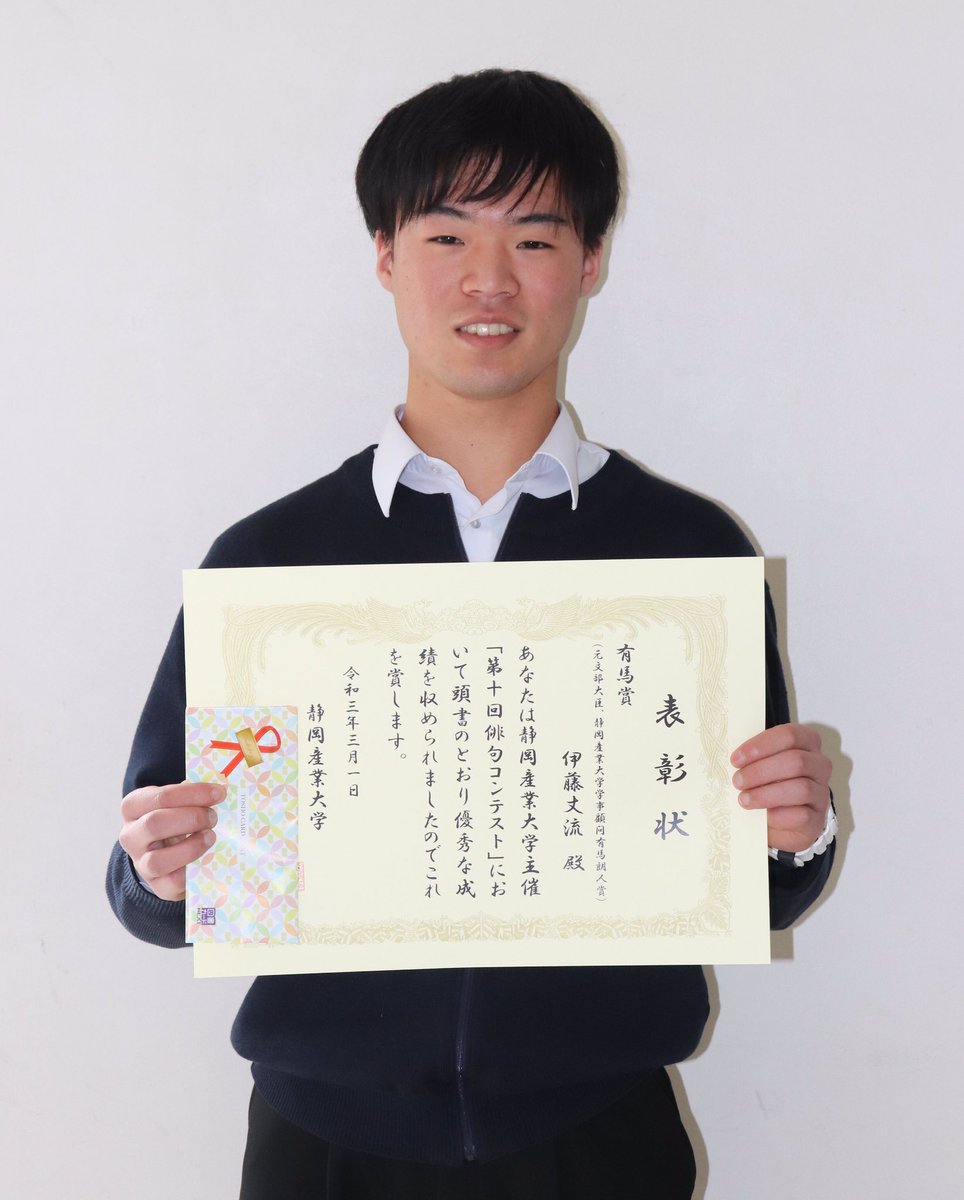 表彰状
有馬賞
(元文部大臣、静岡産業大学学事顧問有馬朗人賞)
伊藤丈流 殿
あなたは静岡産業大学主催
「第十回俳句コンテスト」にお
いて頭書のとおり優秀な成
績を収められましたのでこれ
を賞します。
令和三年三月一日
静岡産業大学
TOSHO CARD NEXT